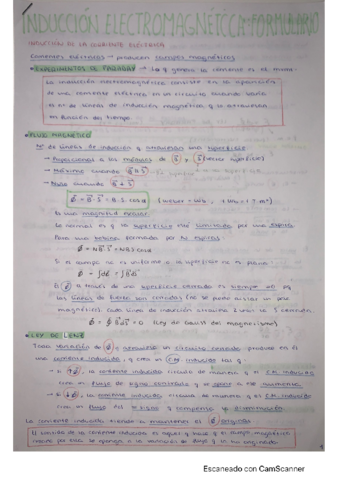 INDUCCIÓN ELECTROMAGNETICCA: FORMULARIO
INDUCCIÓN DE LA CORRIENTE ELÉCTRICA
Corrientes eléctricas → producen campos magnéticos
• EXPERIMENTOS DE FARADAY → Lo q genera la corriente es el mov.
La inducción electromagnética consiste en la aparición
de una corriente eléctrica en un circuito cuando varía
el nº de líneas de inducción magnética q lo atraviesan
en función del tiempo.
• FLUJO MAGNÉTICO
Nº de líneas de inducción q atraviesan una superficie
→ Proporcional a los módulos de B y S (vector superficie)
→ Máximo cuando B ∥ S
→ Nulo cuando B ⊥ S
Φ = B · S = B·S·cos α (Weber = Wb, 1 Wb = 1 T·m²)
Es una magnitud escalar
La normal es q la superficie esté limitada por una espira
Para una bobina formada por N espiras
Φ = N B·S = NBS cos α
Si el campo no es uniforme o la superficie no es plana:
Φ = ∫dΦ = ∫B·dS
El Φ a través de una superficie cerrada es siempre nulo pq
las líneas de fuerza son cerradas (no se puede aislar un polo
magnético). Cada línea de inducción atraviesa 2 veces la S cerrada
Φ = ∮ B·dS = 0 (Ley de Gauss del magnetismo)
• LEY DE LENZ
Toda variación de Φ q atraviesa un circuito cerrado produce en él
una corriente inducida, q crea un C.M. inducido tal q:
- Si ↑Φ, la corriente inducida circula de manera q el C.M. inducido
crea un flujo de signo contrario q se opone a ese aumento
- Si ↓Φ, la corriente inducida circula de manera q el C.M. inducido
crea un flujo del = signo q compensa la disminución
La corriente inducida tiende a mantener el Φ original
El sentido de la corriente inducida es aquel q hace q el campo magnético
creado por ella se oponga a la variación de flujo q la ha originado
Escaneado con CamScanner